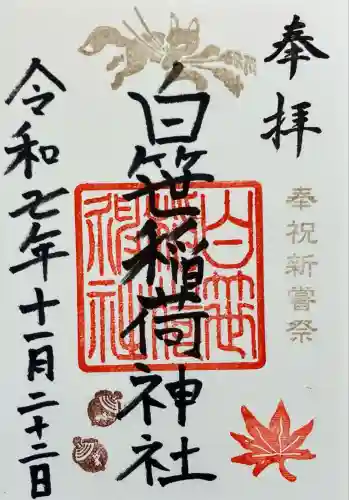 奉拝
奉祝新嘗祭
白笹稲荷神社
白笹稲荷神社
令和七年十一月二十二日